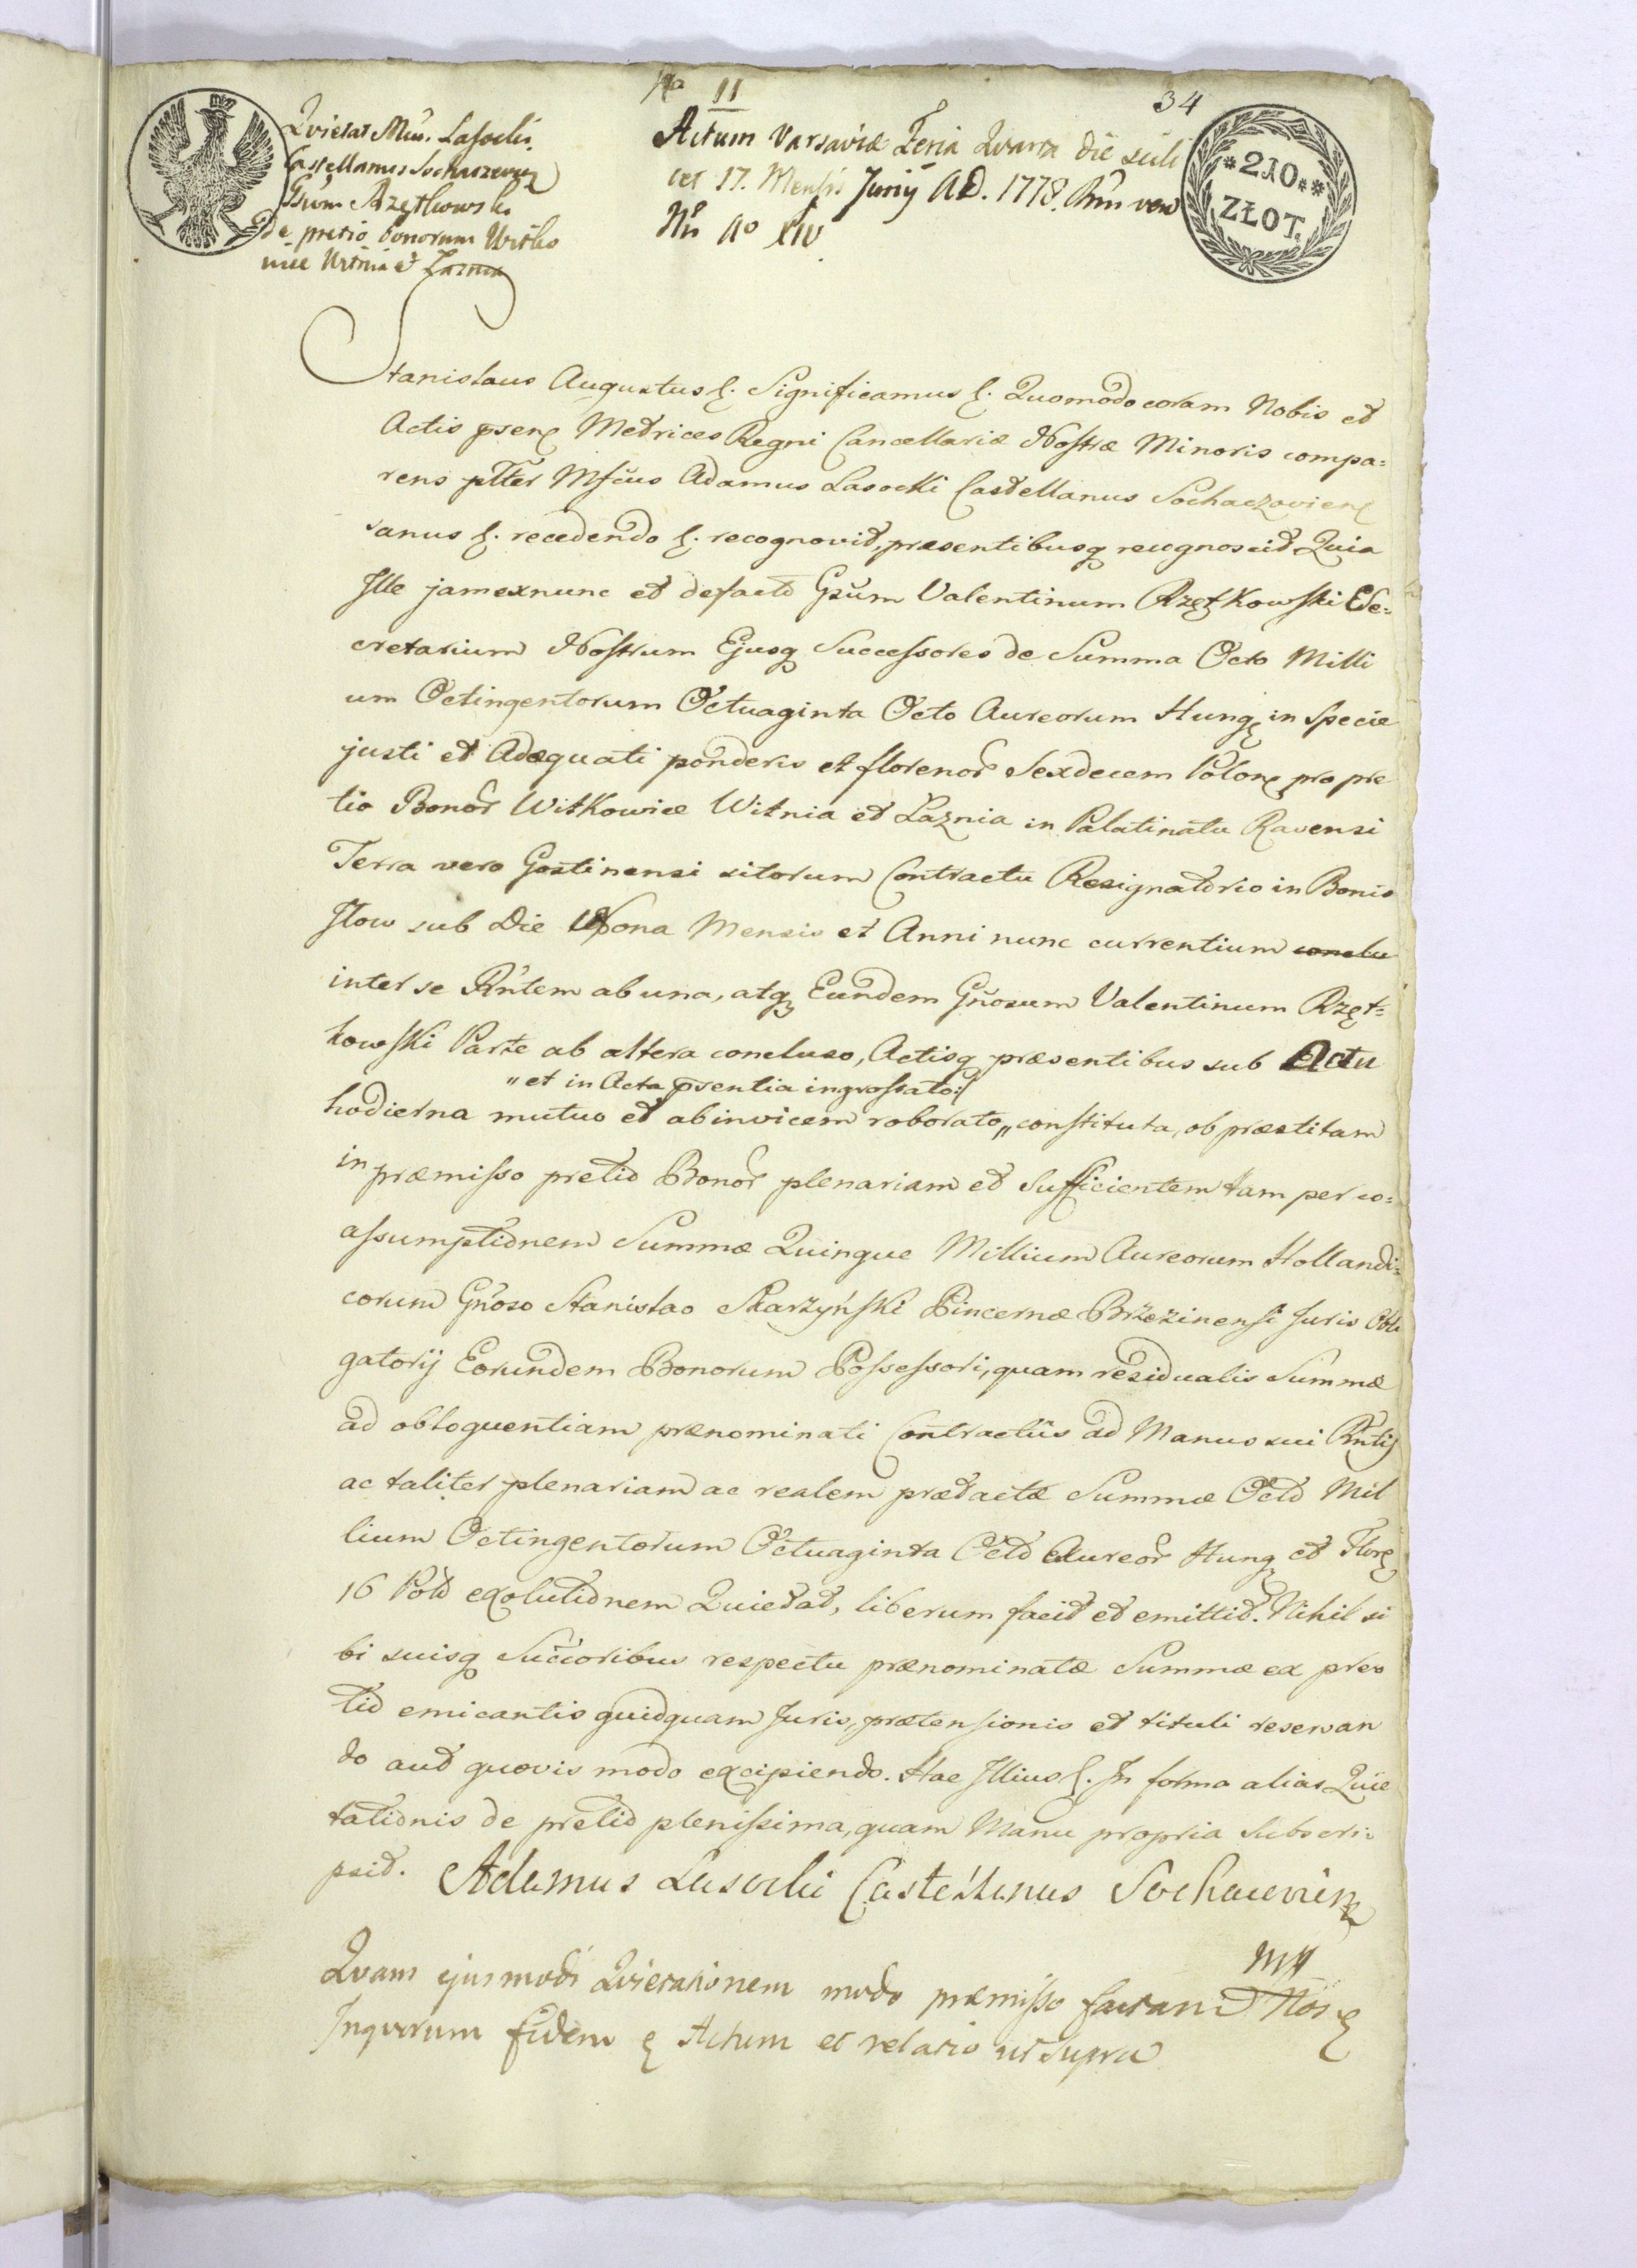 II
34
Quietat Mcus. Lasocki
Castellanus Sochaczevien
Gsum Rzętkowski
De pretio bonorum Witko
wice Witnia et Łaznia
Actum Varsaviæ Feria Quarta die scili
cet 17. Mensis Junij A.D. 1778. Rni vero
Nri Ao XIV
*210**
ZŁOT.
Stanislaus Augustus &. Significamus &. Quomodo coram Nobis et
Actis psen Metrices Regni Cancellariæ Nostræ Minoris compa=
rens pltter Mficus Adamus Lasocki Castellanus Sochaczovien
sanus &. recedendo &. recognovit, præsentibusq recognoscit Quia
Ille jam exnunc et defacto Gsum Valentinum Rzętkowski Se=
cretarium Nostrum Ejusq Successores de Summa Octo Milli
um Octingentorum Octuaginta Octo Aureorum Hung in Specie
justi et Adæquati ponderis et florenor Sexdecem Polon pro pre
tio Bonor Witkowice Witnia et Łaznia in Palatinatu Ravensi
Terra vero Gostinensi sitorum Contractu Resignatorio in Bonis
Iłow sub Die Nona Mensis et Anni nunc currentium conclu
inter se Rntem ab una, atq Eundem Gnosum Valentinum Rzęt=
kowski Parte ab altera concluso, Actisq præsentibus sub Actu
„et in Acta psentia ingrossato:/
hodierna mutuo et abinvicem roborato„ constituta, ob præstitam
in præmisso pretio Bonor plenariam et Sufficientem tam per co=
assumptionem Summæ Quinque Millium Aureorum Hollandi=
corum Gnoso Stanislao Skarzyński Pincernæ Brzezinensi Juris Obli
gatorij Eorundem Bonorum Possessori, quam residualis Summæ
ad obloquentiam prænominati Contractûs ad Manus sui Rntis
ac taliter plenariam ac realem prætactæ Summæ Octo Mil
lium Octingentorum Octuaginta Octo Aureor Hung et Flor
16 Pol exolutionem Quietat, liberum facit et emittit. Nihil si
bi suisq Succioribus respectu prænominatæ Summæ ex præ
tio emicantis quidquam Juris, prætensionis et tituli reservan
do aut quovis modo excipiendo. Hac Illius &. In forma alias Quie
tationis de pretio plenissima, quam Manu propria Subscri=
psit. Adamus Lasocki Castellanus Sochacovien
mp
Quam ejusmodi Quietationem modo præmisso factam Nos &
In quorum fidem & Actum et relatio ut supra